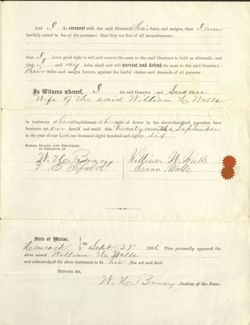 And I do covenant with the said Grantee, his heirs and assigns, that I am
lawfully seized in fee of the premises; that they are free of all incumbrances;
that I have good right to sell and convey the same to the said Grantee to hold as aforesaid; and
that I and my heirs, shall and will warrant and defend the same to the said Grantee
heirs and assigns forever, against the lawful claims and demands of all persons.
In Witness whereof, I the said Grantor, and Susan
Wife of the said William H. Walls
in testimony of her relinquishment of her right of dower in the above-described premises, have
hereunto set our hands and seals this twenty seventh September
in the year of our Lord one thousand eight hundred and eighty six.
Signed, Sealed and Delivered
in Presence of
William H. Walls
Susan Walls
State of Maine,
Hancock ss. Sept 27 1886 Then personally appeared the
above named William H. Walls
and acknowledged the above instrument to be his free act and deed.
Before me,
Justice of the Peace.